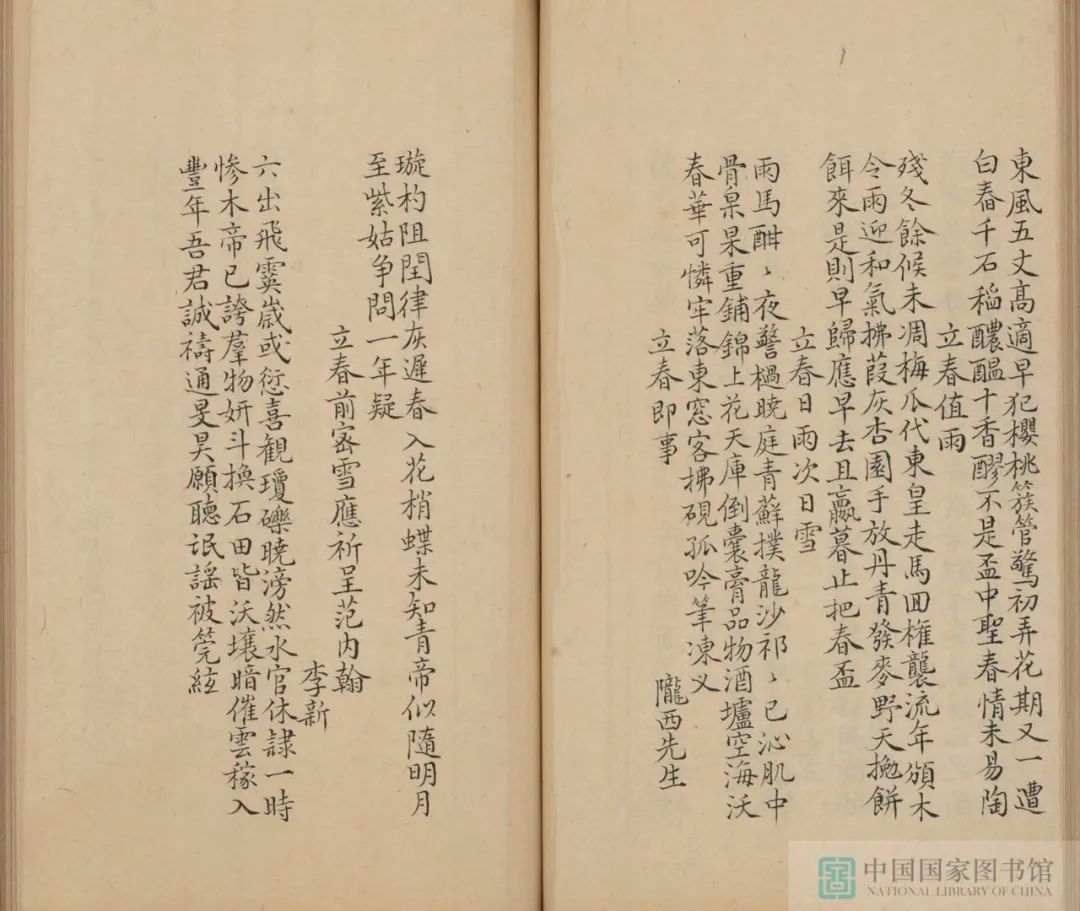 東風五丈高適早犯櫻桃簇管驚初弄花期又一遭
白春千石稻醲醞十香醪不是盃中聖春情未易陶
立春值雨
殘冬餘候未凋梅瓜代東皇走馬回權襲流年頒木
令雨迎和氣拂葭灰杏園手放丹青發麥野天攙餅
餌來是則早歸應早去且贏暮止把春盃
立春日雨次日雪
雨馬酣〻夜警檛曉庭青蘇撲龍沙祁〻已沁肌中
骨杲杲重鋪錦上花天庫倒囊膏品物酒壚空海沃
春華可憐牢落東窓客拂硯孤吟筆凍乂
立春即事
隴西先生
璇杓阻閏律灰遲春入花梢蝶未知青帝似隨明月
至紫姑争問一年疑
立春前密雪應祈呈范内翰
李新
六出飛霙歲或愆喜觀瓊礫曉滂然水官休隷一時
惨木帝已誇羣物妍斗換石田皆沃壤暗催雲稼入
豐年吾君誠禱通旻昊願聽氓謡被筦絃
中国国家图书馆
NATIONAL LIBRARY OF CHINA